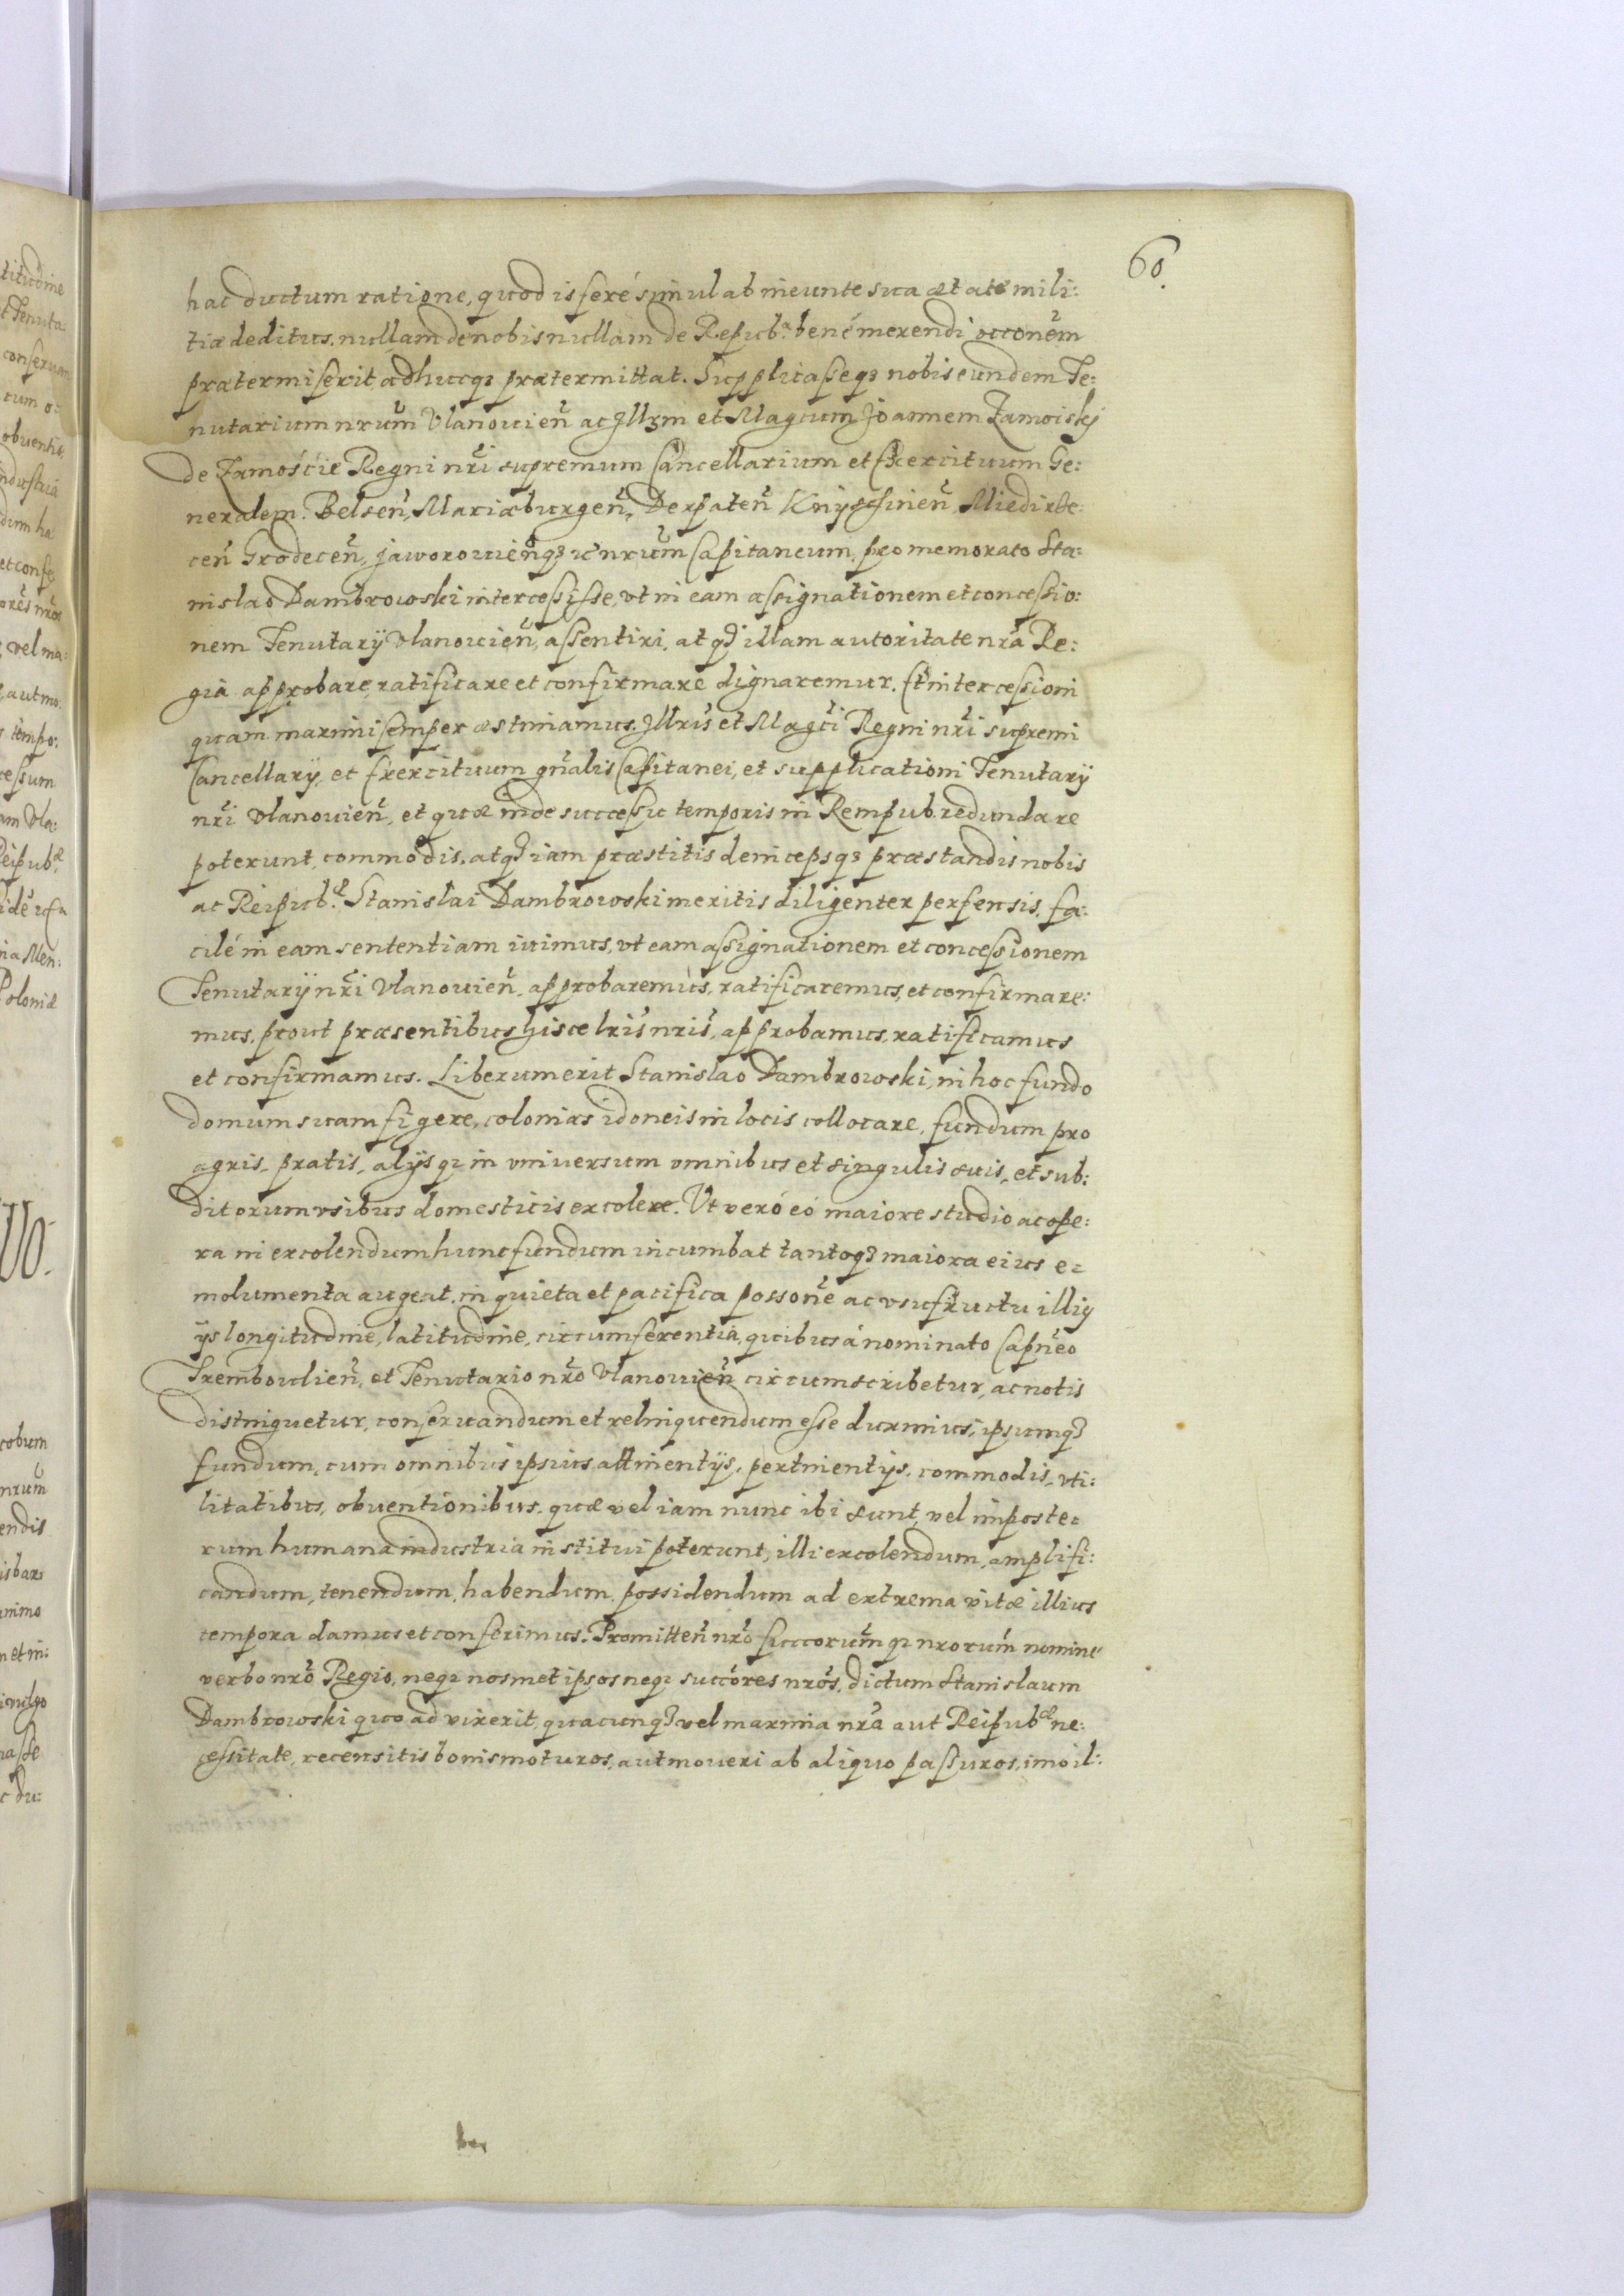 60.
hac ductum ratione, quod is ferè simul ab ineunte sua ætate mili:
tiæ deditus, nullam de nobis nullam de Repub.ᵃ benè merendi occonem̃
prætermiserit adhucq3 prætermittat. Supplicasseq3 nobis eundem Te:
nutarium nrũm Vlanouien̄ ac Jll3m et Magcum Joannem Zamoiskj
de Zamoście Regni nr̃i supremum Cancellarium et Exercituum Ge:
neralem. Belsen̄, Mariæburgen̄, Derpaten̄ Knÿschinen̄, Miedirze:
cen̄ Grodecen̄, jaworouien̄q3 nrũm Capitaneum, pro memorato Sta:
nislao Dambrowski intercessisse, vt in eam assignationem et concessio:
nem Tenutarÿ Vlanouien̄, assentiri, atq3 illam autoritate nr̃a Re:
gia approbare, ratificare et confirmare dignaremur. Et intercessioni
quam maximi semper æstimamus. Jllris̃ et Magc̃i Regni nr̃i supremi
Cancellarÿ, et Exercituum gn̄alis Capitanei, et supplicationi Tenutarÿ
nr̃i Vlanouien̄, et quæ inde successu temporis in Rempub. redundare
poterunt, commodis, atq3 iam præstitis deincepsq3 præstandis nobis
ac Reipub.æ Stanislai Dambrowski meritis diligenter pensis, fa:
cilè in eam sententiam iuimus, vt eam assignationem et concessionem
Tenutarÿ nr̃i Vlanouien̄, approbaremùs, ratificaremus, et confirmare:
mus, prout præsentibus hisce lris̃ nris̃, approbamus, ratificamus
et confirmamus. Liberum erit Stanislao Dambrowski, in hoc fundo
domum suam figere, colonias idoneis in locis collocare, fundum pro
agris, pratis, alÿsq3 in vniversum omnibus et singulis suis, et sub:
ditorum vsibus domesticis excolere. Vt verò eò maiore studio ac ope:
ra in excolendum hunc fundum incumbat tantoq3 maiora eius e:
molumenta augeat, in quieta et pacifica posson̄e ac vsufructu illiꝯ
ÿs longitudine, latitudine, circumferentia, quibus à nominato Capn̄eo
Trembowlien̄, et Tenutario nr̃o Vlanouien̄ circumscribetur, ac notis
distinguetur, conseruandum et relinquendum esse duximus, ipsumq3
fundum, cum omnibus ipsius attinentÿs, pertinentÿs, commodis, vti:
litatibus, obuentionibus, quæ vel iam nunc ibi sunt, vel imposte:
rum humana industria institui poterunt, illi excolendum, amplifi:
candum, tenendum, habendum, possidendum ad extrema vitæ illius
tempora damus et conferimus. Promitten̄ nr̃o succorum̃q3 nrorum̃ nomine
verbo nr̃o Regio, neq3 nosmet ipsos neq3 succõres nrõs, dictum Stanislaum
Dambrowski quo ad vixerit, quacunq3 vel maxima nr̃a aut Reipub.æ ne:
cessitate, recensitis bonis moturos, aut moueri ab aliquo passuros, imo il: